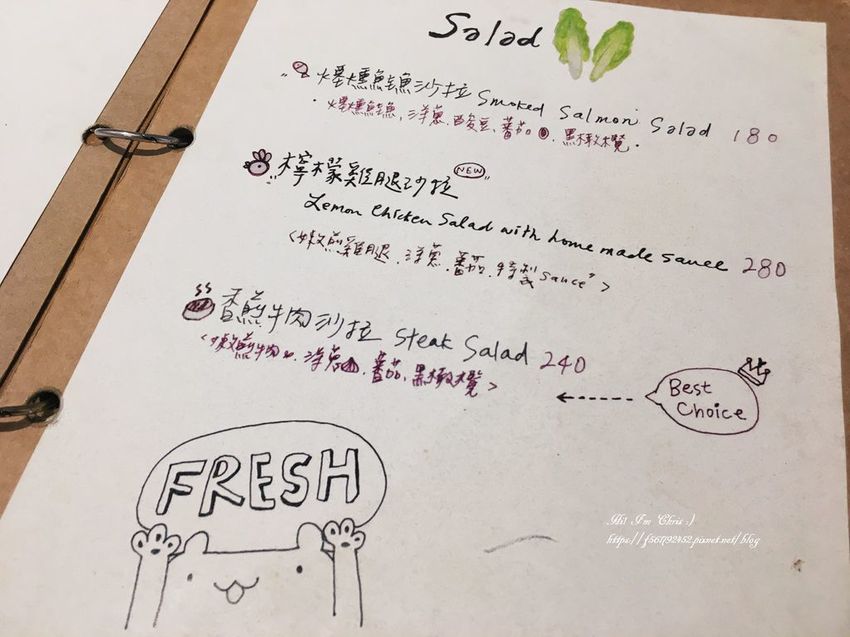 Salad
煙燻鮭魚沙拉 Smoked Salmon Salad 180
煙燻鮭魚、洋蔥、酸豆、蕃茄、黑橄欖
檸檬雞腿沙拉 NEW
Lemon chicken Salad with home made sauce 280
<嫩煎雞腿、洋蔥、蕃茄、特製sauce>
香煎牛肉沙拉 Steak Salad 240
<嫩煎牛肉、洋蔥、蕃茄、黑橄欖>
Best
Choice
FRESH
Hi! I'm Chris :)
https://f5611792452.pixnet.net/blog